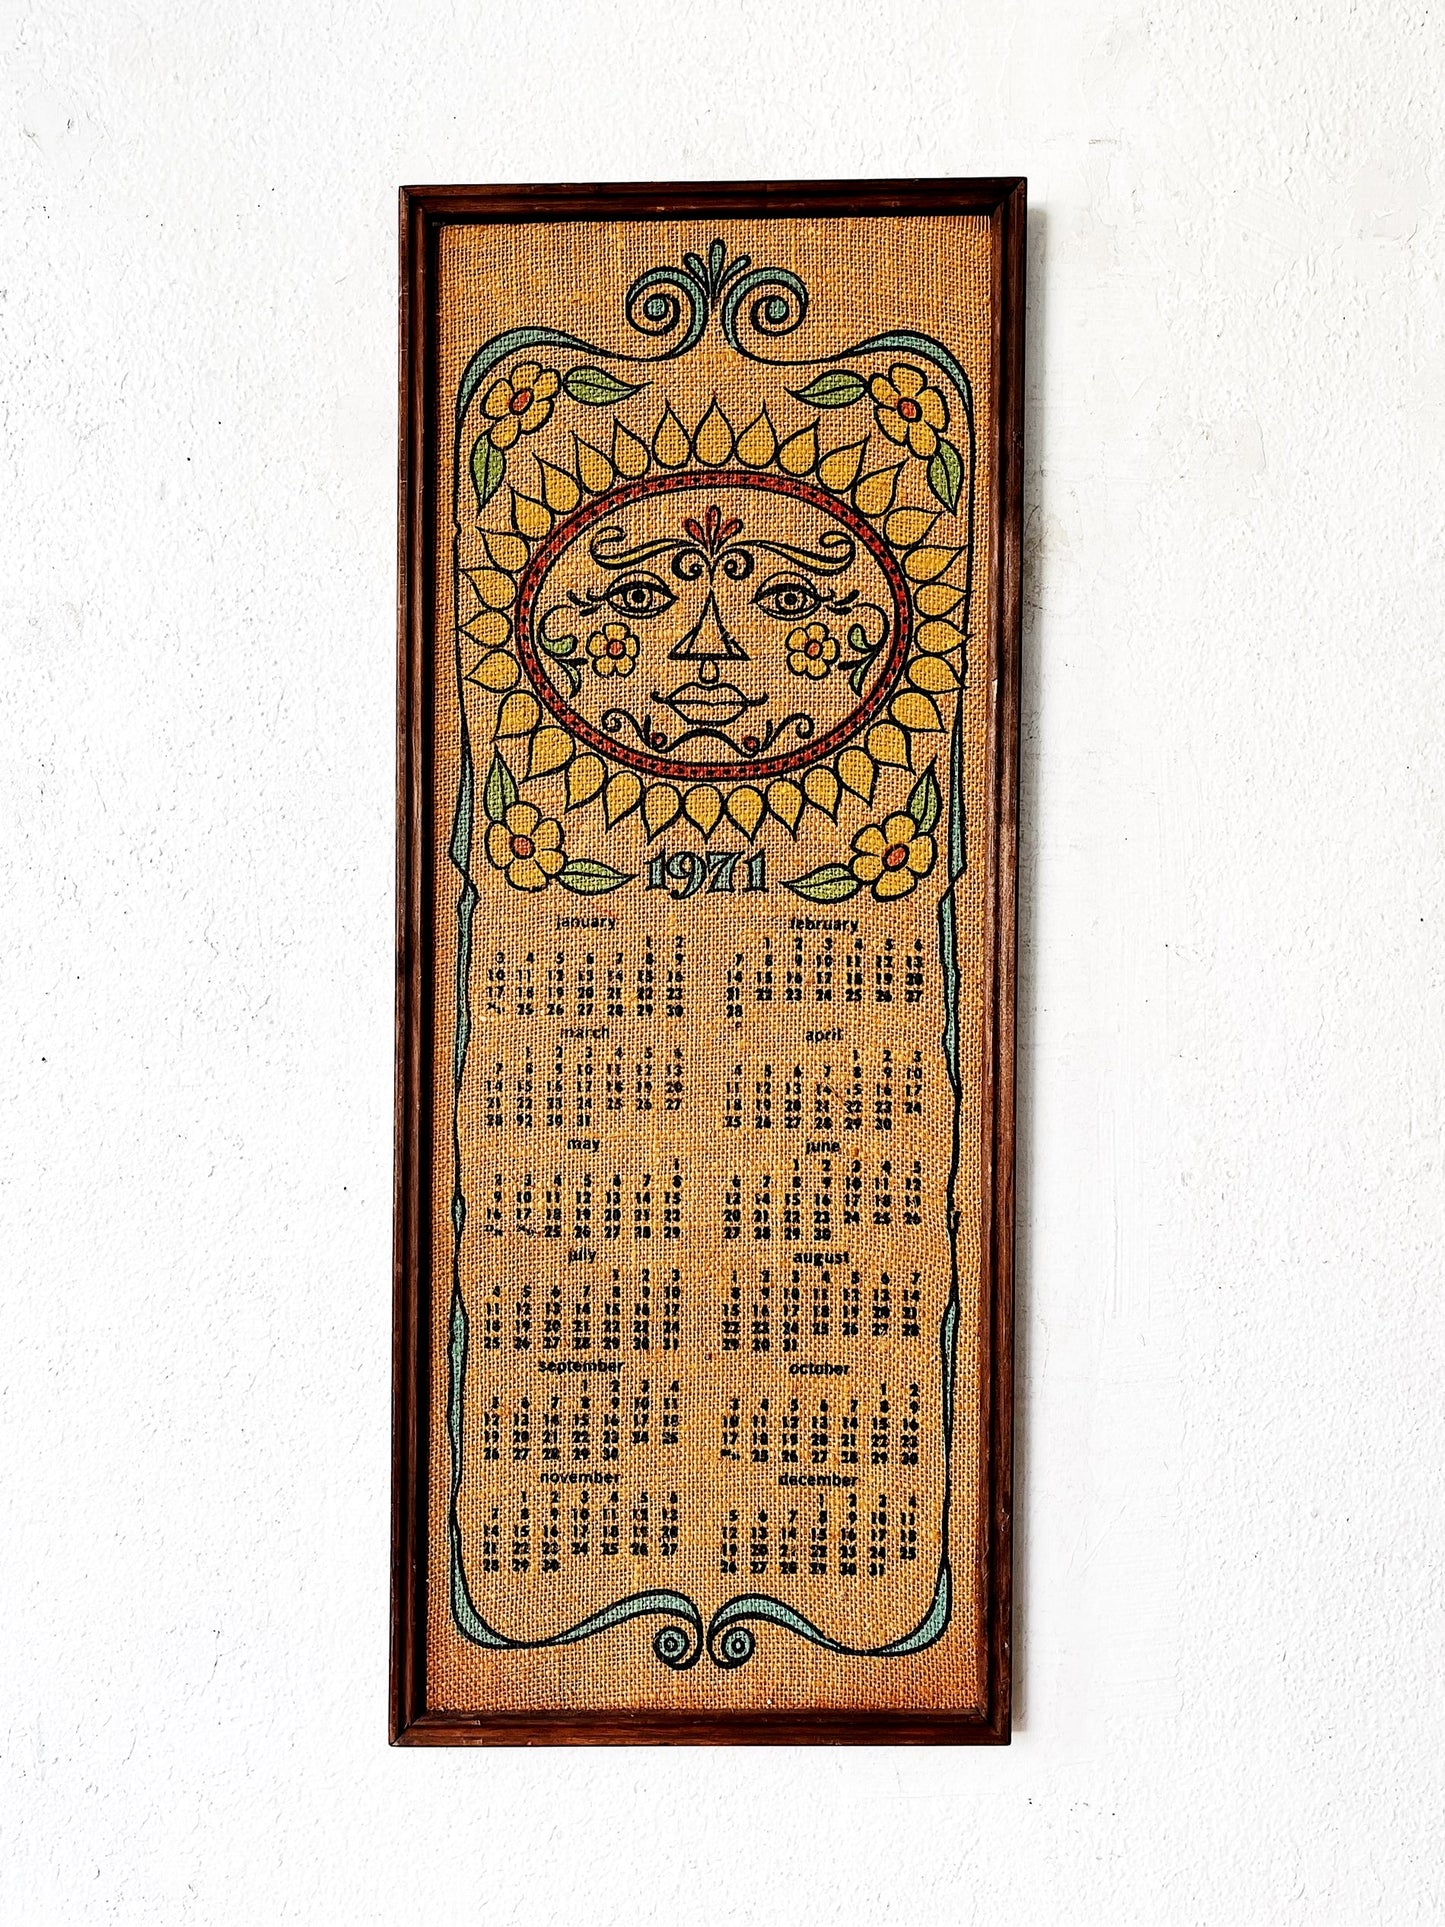 1971
january
1 2
3 4 5 6 7 8 9
10 11 12 13 14 15 16
17 18 19 20 21 22 23
25 26 27 28 29 30
february
1 2 3 4 5 6
7 8 9 10 11 12 13
14 15 16 17 18 19 20
21 22 23 24 25 26 27
28
march
1 2 3 4 5 6
7 8 9 10 11 12 13
14 15 16 17 18 19 20
21 22 23 24 25 26 27
28 92 30 31
april
1 2 3
4 5 6 7 8 9 10
11 12 13 14 15 16 17
18 19 20 21 22 23 24
25 26 27 28 29 30
may
1
2 3 4 5 6 7 8
9 10 11 12 13 14 15
16 17 18 19 20 21 22
25 26 27 28 29
june
1 2 3 4 5
6 7 8 9 10 11 12
13 14 15 16 17 18 19
20 21 22 23 24 25 26
27 28 29 30
july
1 2 3
4 5 6 7 8 9 10
11 12 13 14 15 16 17
18 19 20 21 22 23 24
25 26 27 28 29 30 31
august
1 2 3 4 5 6 7
8 9 10 11 12 13 14
15 16 17 18 19 20 21
22 23 24 25 26 27 28
29 30 31
september
1 2 3 4
5 6 7 8 9 10 11
12 13 14 15 16 17 18
19 20 21 22 23 24 25
26 27 28 29 30
october
1 2
3 4 5 6 7 8 9
10 11 12 13 14 15 16
17 18 19 20 21 22 23
25 26 27 28 29 30
november
1 2 3 4 5 6
7 8 9 10 11 12 13
14 15 16 17 18 19 20
21 22 23 24 25 26 27
28 29 30
december
1 2 3 4
5 6 7 8 9 10 11
12 13 14 15 16 17 18
19 20 21 22 23 24 25
26 27 28 29 30 31